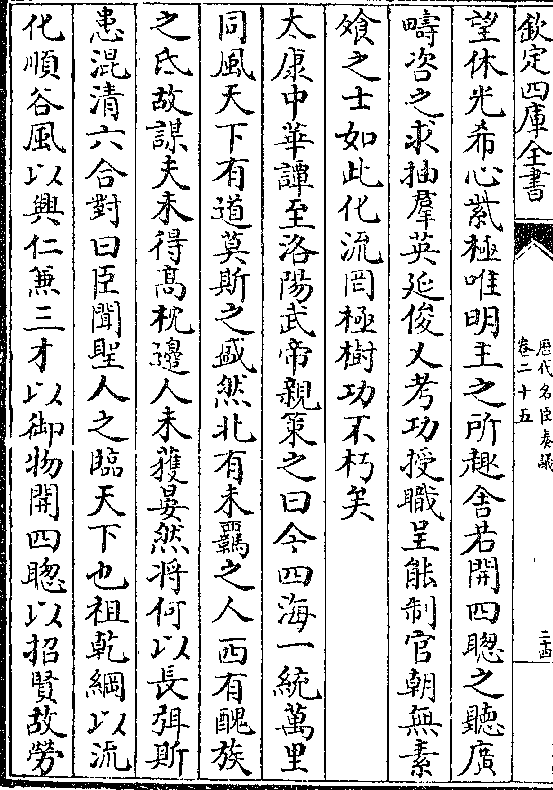 欽定四庫全書
歷代名臣奏議
卷二十五
二十四
望休光希心紫極唯明主之所趣舍若開四聰之聽廣
疇咨之求抽羣英延俊乂考功授職呈能制官朝無素
飧之士如此化流罔極樹功不朽矣
太康中華譚至洛陽武帝親策之曰今四海一統萬里
同風天下有道莫斯之盛然北有未羈之人西有醜族
之氐故謀夫未得高枕邊人未獲晏然將何以長弭斯
患混清六合對曰臣聞聖人之臨天下也祖乾綱以流
化順谷風以興仁兼三才以御物開四聰以招賢故勞